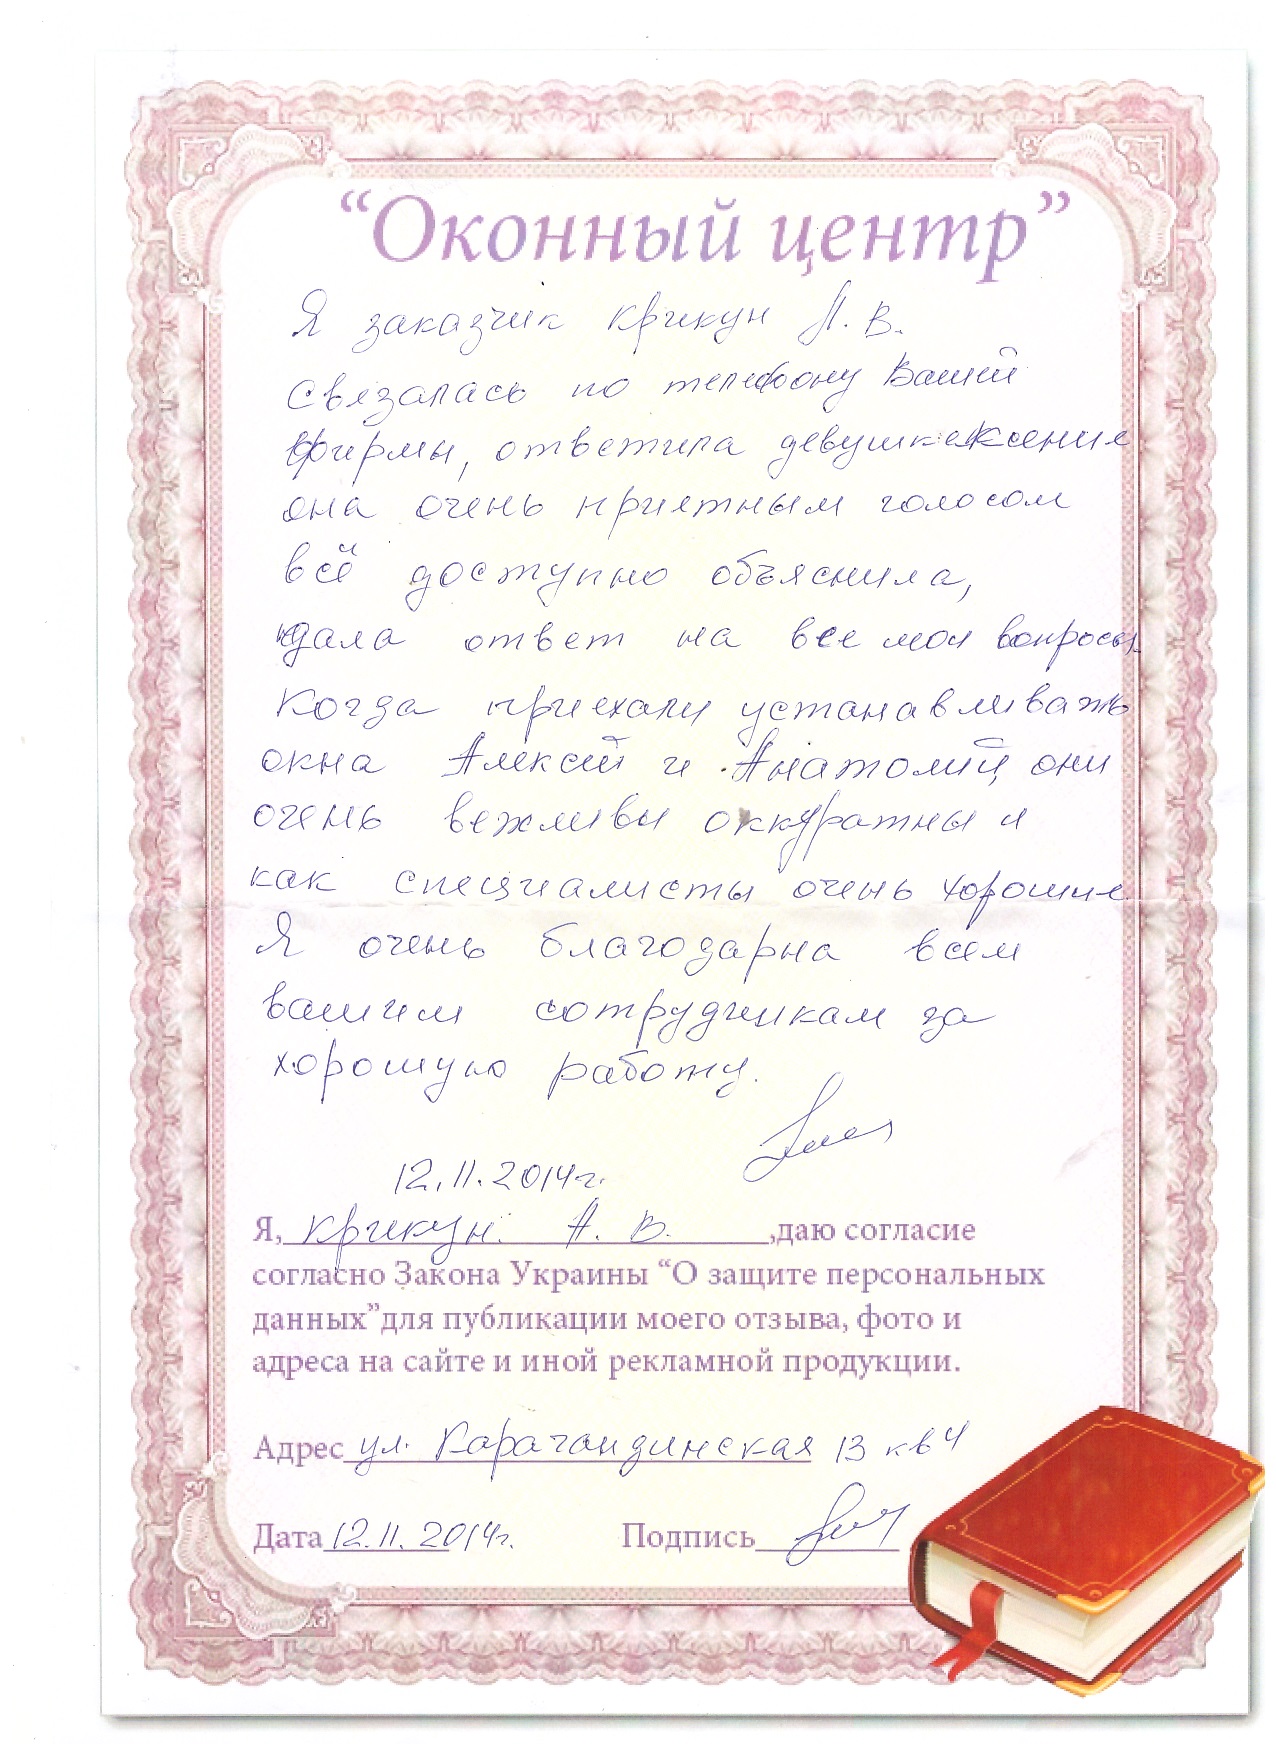 “Оконный центр”
Я заказчик Крикун А. В.
Связалась по телефону Вашей
фирмы, ответила девушка Ксения
она очень приятным голосом
всё доступно объяснила,
дала ответ на все мои вопросы.
Когда приехали устанавливать
окна Алексей и Анатолий они
очень вежливы оккуратны и
как специалисты очень хорошие.
Я очень благодарна всем
вашим сотрудникам за
хорошую работу.
12.11.2014г.
Я, Крикун А. В. ,даю согласие
согласно Закона Украины “О защите персональных
данных”для публикации моего отзыва, фото и
адреса на сайте и иной рекламной продукции.
Адрес ул. Карагандинская 13 кв 4
Дата 12.11.2014г. Подпись